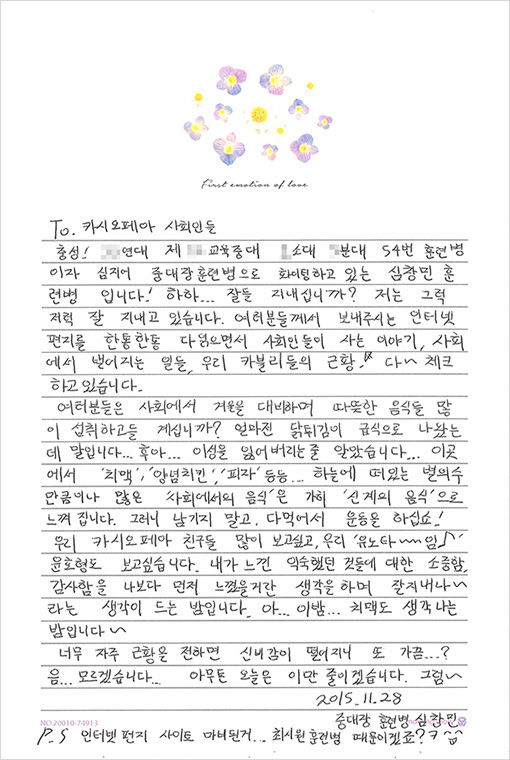 First emotion of love
To. 카시오페아 사회인들
충성! 연대 제 교육중대 소대 분대 54번 훈련병
이자 심지어 중대장훈련병으로 화이팅하고 있는 심창민 훈
련병 입니다! 하하... 잘들 지내십니까? 저는 그럭
저럭 잘 지내고 있습니다. 여러분들께서 보내주시는 인터넷
편지를 한통한통 다읽으면서 사회인들이 사는 이야기, 사회
에서 벌어지는 일들, 우리 카블리들의 근황!! 다~ 체크
하고있습니다.
여러분들은 사회에서 겨울을 대비하며 따뜻한 음식들 많
이 섭취하고들 계십니까? 얼마전 닭튀김이 급식으로 나왔는
데 말입니다... 후아... 이성을 잃어버리는줄 알았습니다... 이곳
에서 '치맥', '양념치킨', '피자' 등등... 하늘에 떠있는 별의수
만큼이나 많은 '사회에서의 음식'은 가히 '신계의 음식'으로
느껴집니다. 그러니 남기지 말고, 다먹어서 운동을 하십쇼!
우리 카시오페아 친구들 많이 보고싶고, 우리 '유노타~~임♪'
윤호형도 보고싶습니다. 내가 느낀 익숙했던 것들에 대한 소중함,
감사함을 나보다 먼저 느꼈을거란 생각을 하며 잘지내나~
라는 생각이 드는 밤입니다. 아... 이밤... 치맥도 생각나는
밤입니다~
너무 자주 근황을 전하면 신비감이 떨어지니 또 가끔...?
음... 모르겠습니다... 아무튼 오늘은 이만 줄이겠습니다. 그럼~
2015. 11. 28
중대장 훈련병 심창민
NO.20010-74913
P.S 인터넷편지 사이트 마비된거... 최시원훈련병 때문이겠죠?ㅋ^^